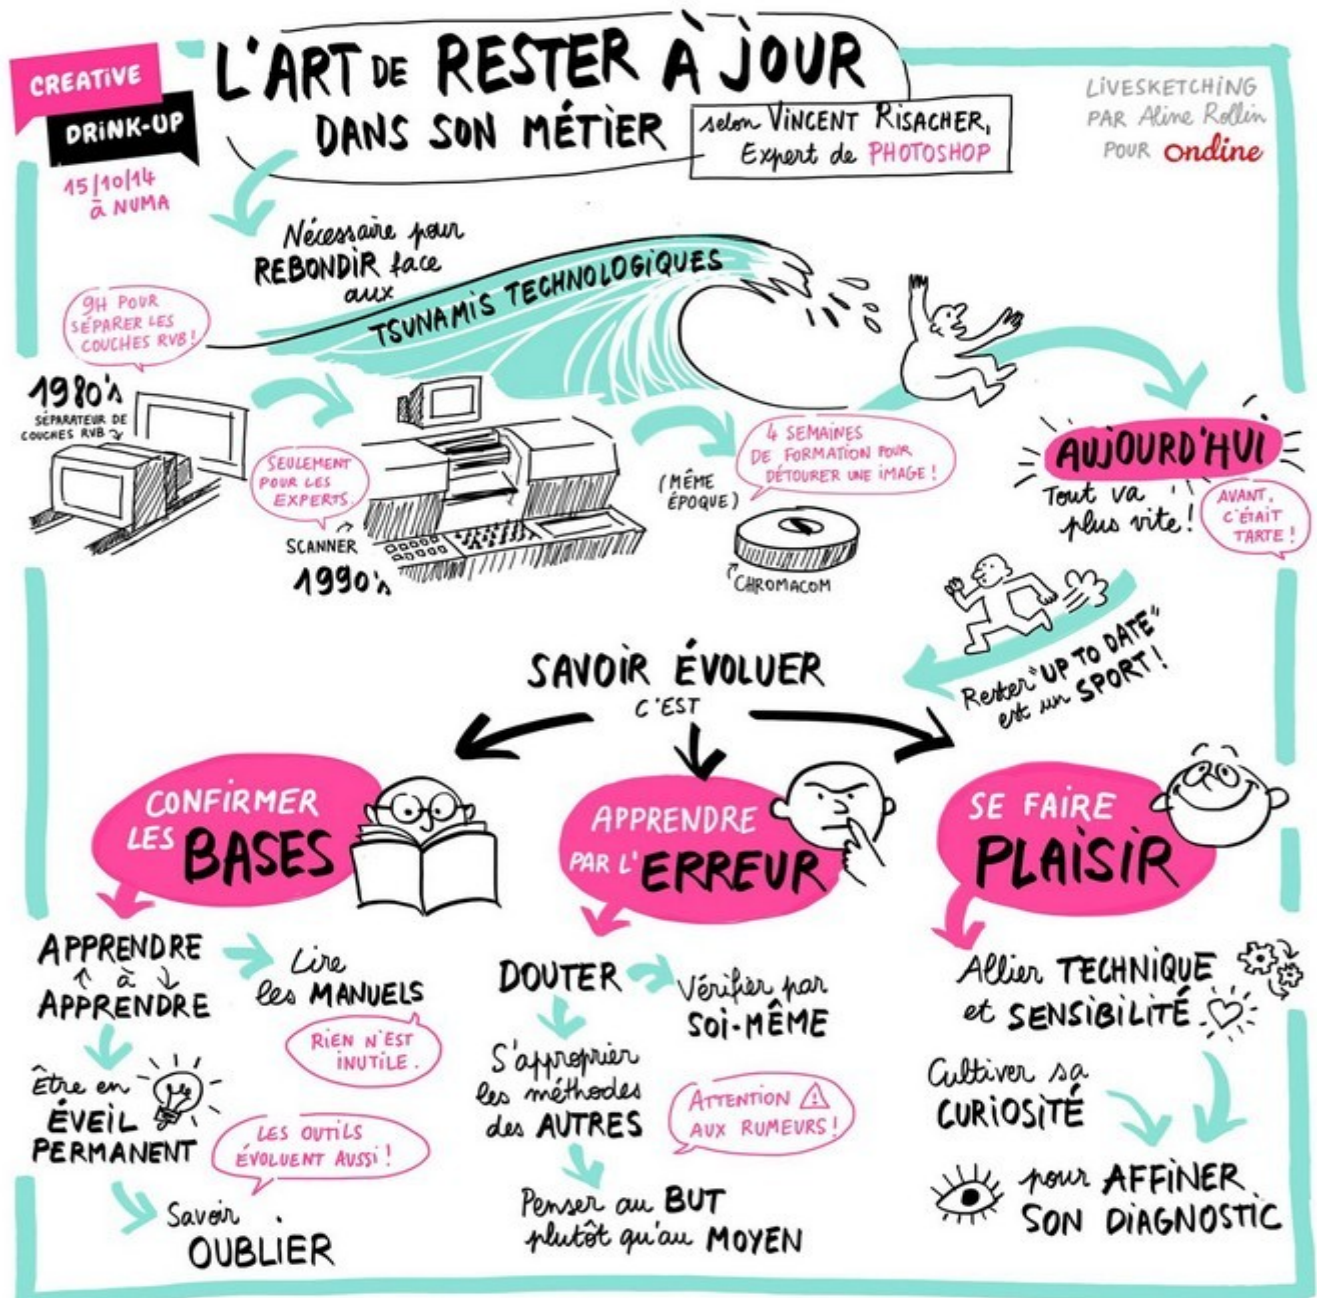 CREATIVE
DRINK-UP
15/10/14
à NUMA
L'ART DE RESTER À JOUR
DANS SON MÉTIER
selon VINCENT RISACHER,
Expert de PHOTOSHOP
LIVESKETCHING
PAR Aline Rollin
POUR Ondine
Nécessaire pour
REBONDIR face
aux
TSUNAMIS TECHNOLOGIQUES
9H POUR
SÉPARER LES
COUCHES RVB!
1980's
SÉPARATEUR DE
COUCHES RVB
SEULEMENT
POUR LES
EXPERTS.
SCANNER
1990's
(MÊME
ÉPOQUE)
4 SEMAINES
DE FORMATION POUR
DÉTOURER UNE IMAGE!
CHROMACOM
AUJOURD'HUI
Tout va
plus vite!
AVANT,
C'ÉTAIT
TARTE!
Rester "UP TO DATE"
est un SPORT!
SAVOIR ÉVOLUER
C'EST
CONFIRMER
LES BASES
APPRENDRE
à
APPRENDRE
Lire
les MANUELS
RIEN N'EST
INUTILE.
Être en
ÉVEIL
PERMANENT
LES OUTILS
ÉVOLUENT AUSSI!
Savoir
OUBLIER
APPRENDRE
PAR L'ERREUR
DOUTER
Vérifier par
SOI-MÊME
S'approprier
les méthodes
des AUTRES
ATTENTION
AUX RUMEURS!
Penser au BUT
plutôt qu'au MOYEN
SE FAIRE
PLAISIR
Allier TECHNIQUE
et SENSIBILITÉ
Cultiver sa
CURIOSITÉ
pour AFFINER
SON DIAGNOSTIC